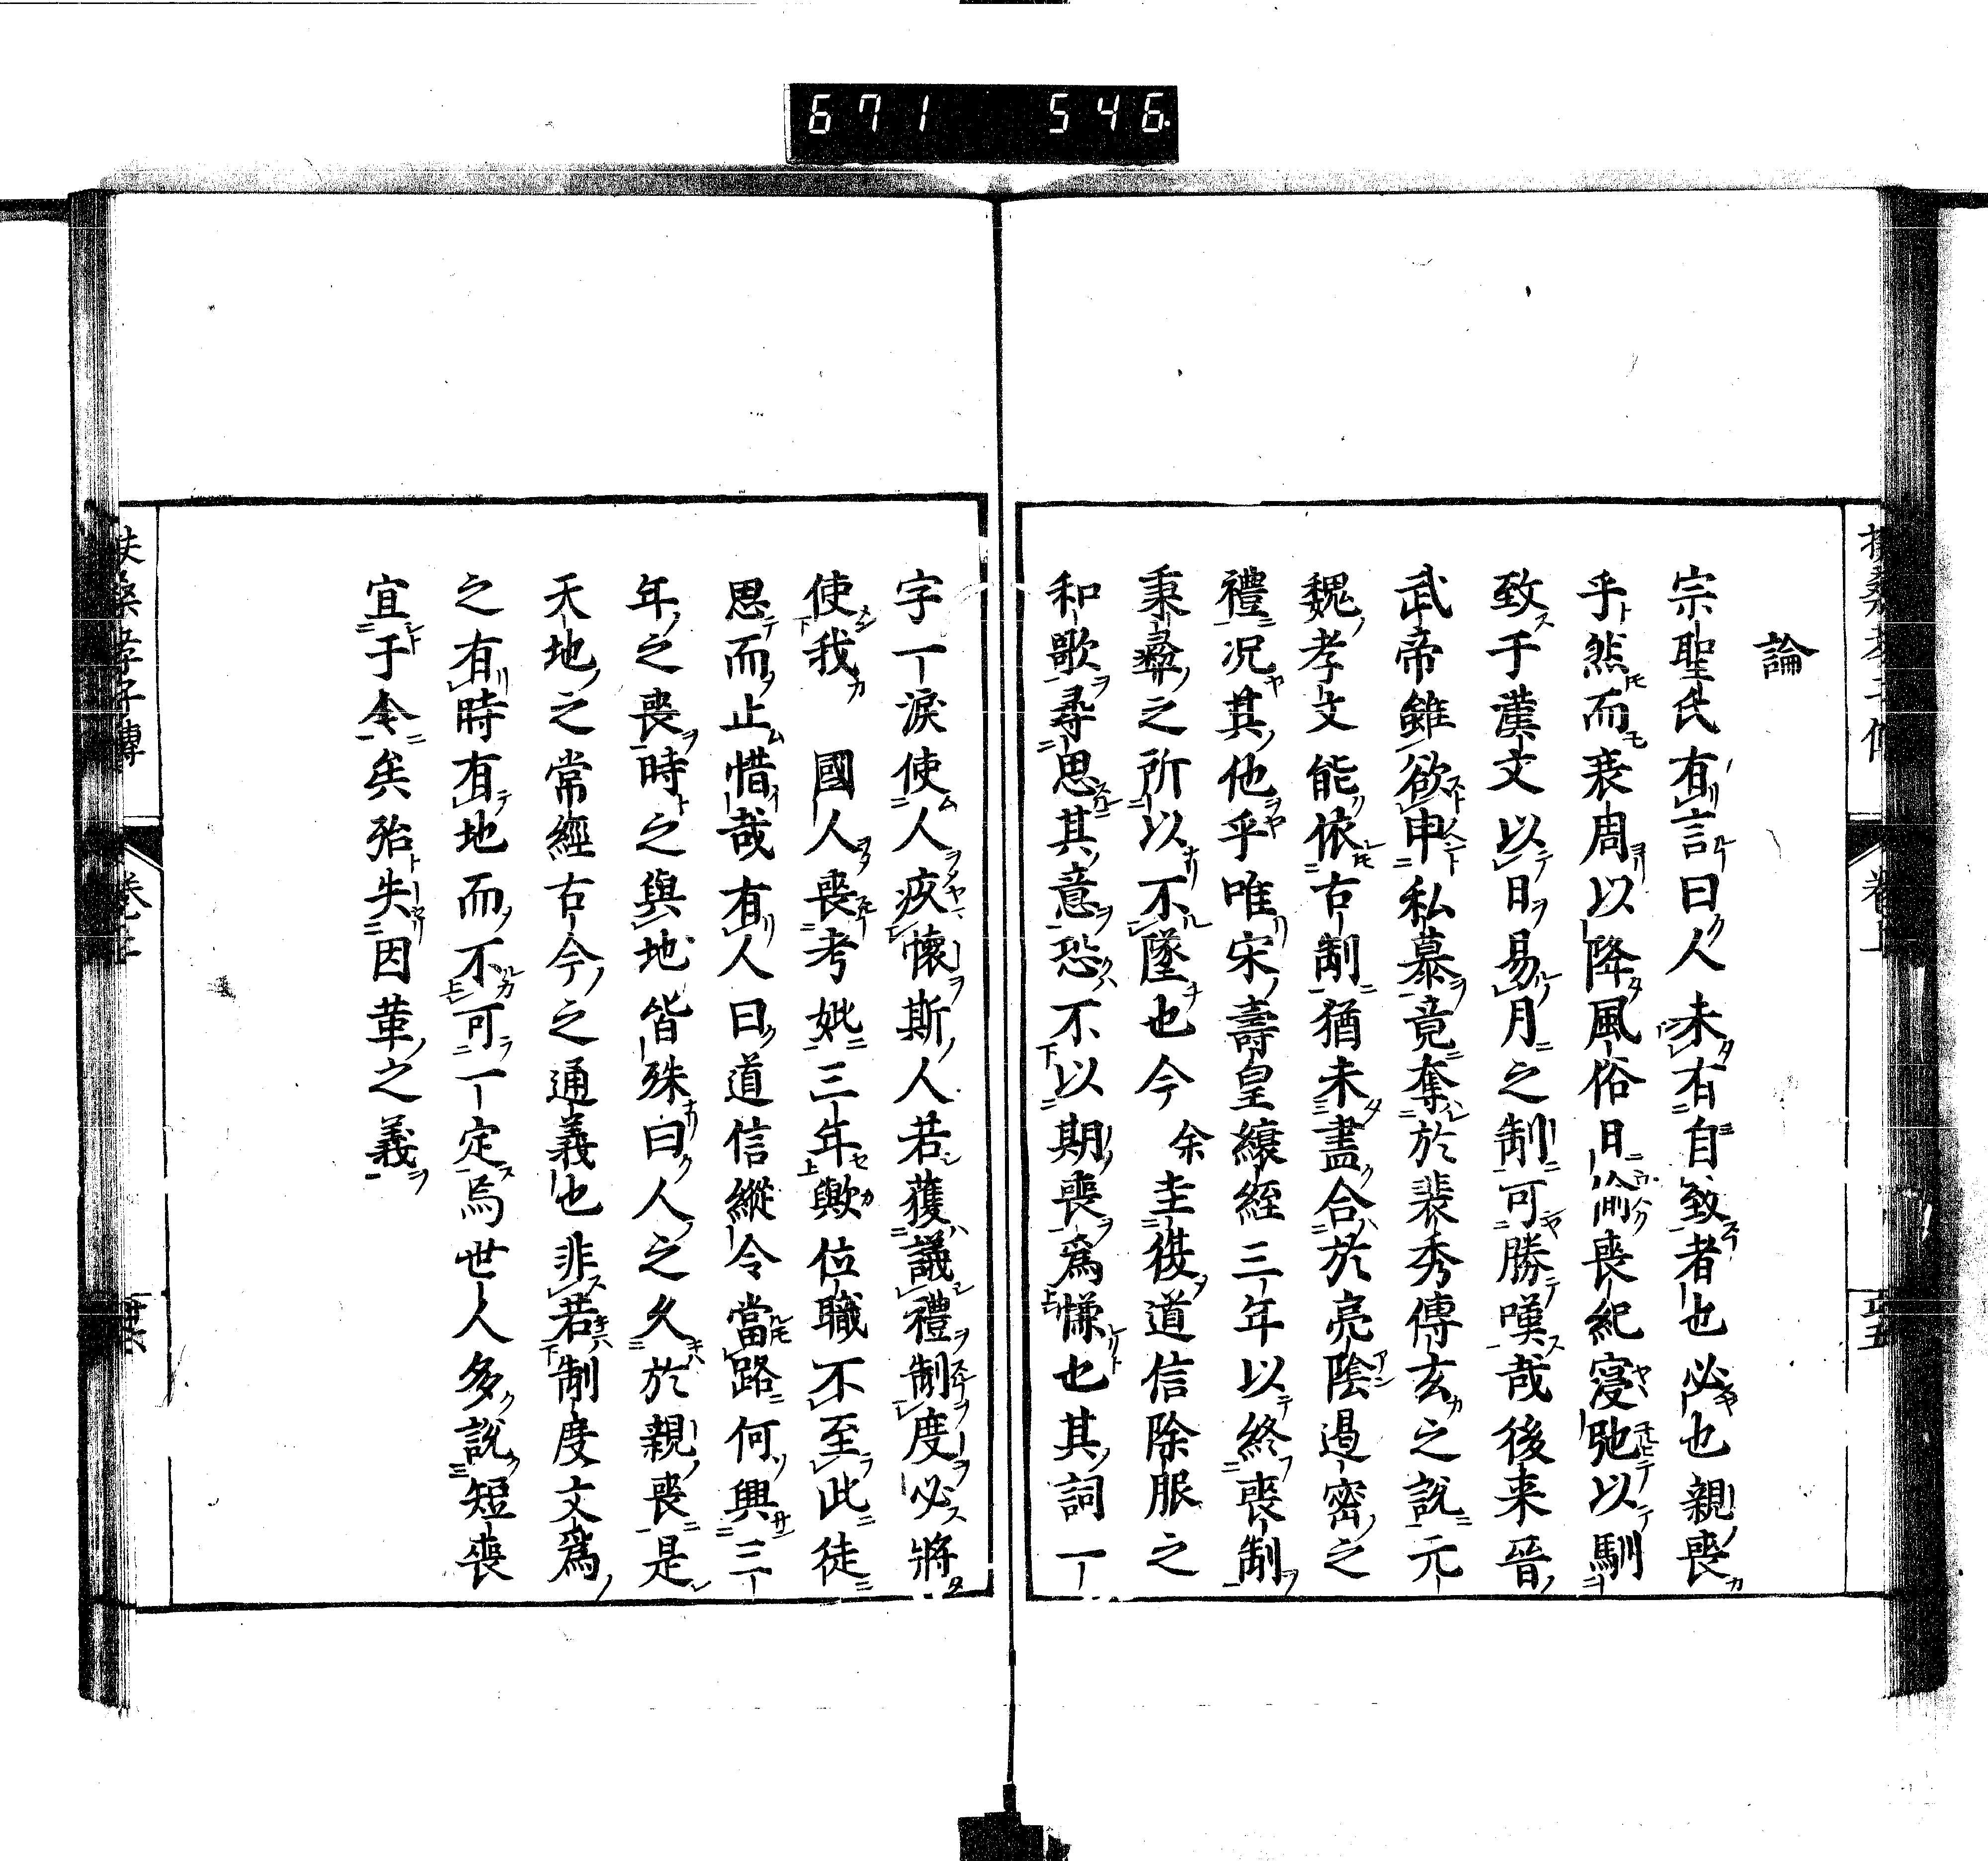 671 546
論
宗聖氏有言曰人未有自致者也必也親喪
乎然而衰周以降風俗日偷喪紀寖弛以馴
致于漢文以日易月之制可勝嘆哉後来晉
武帝雖欲申私慕竟奪於裴秀傳玄之説元
魏孝文能依古制猶未盡合於亮陰遏密之
禮况其他乎唯宋壽皇縗絰三年以終喪制
秉彝之所以不墜也今 余圭復道信除服之
和歌尋思其意恐不以期喪爲慊也其詞一
字一淚使人疚懷斯人若獲議禮制度必將
使我 國人喪考妣三年歟位職不至此徒
思而止惜哉有人曰道信縱令當路何興三
年之喪時之與地皆殊曰人之久於親喪是
天地之常經古今之通義也非若制度文爲
之有時有地而不可一定焉世人多説短喪
宜于今矣殆失因革之義
扶桑孝子傳 卷上